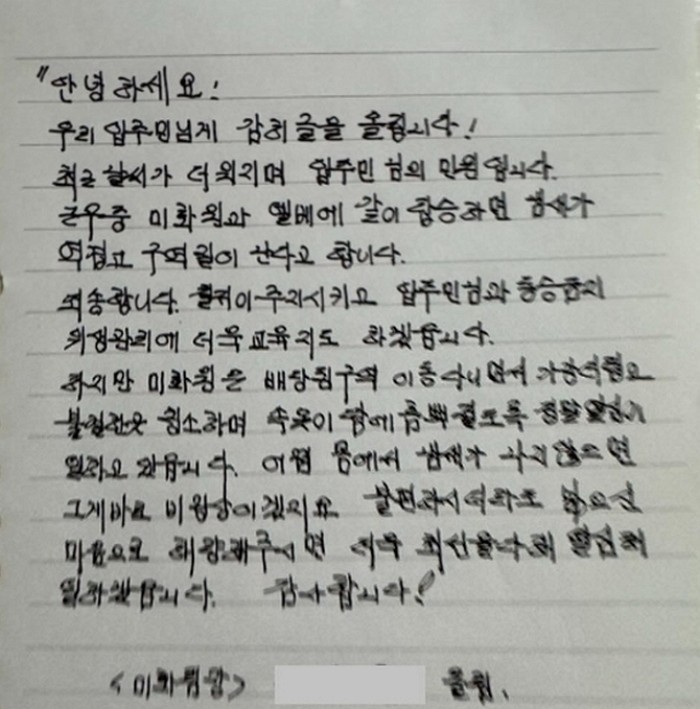 "안녕하세요!
우리 입주민님께 감히 글을 올립니다!
최근 날씨가 더워지며 입주민 님의 민원입니다.
근무중 미화원과 엘베에 같이 탑승하면 냄새가
역겹고 구역질이 난다고 합니다.
죄송합니다. 철저히 주지시키고 입주민님과 동승금지
위생관리에 더욱 교육지도 하겠습니다.
하지만 미화원은 배당된구역 이동다니면서
청소하며 속옷이 땀에 흠뻑 젖도록 정말 열심히
일하고 있습니다. 어찜 몸에서 냄새가 나지않으면
그게바로 비정상이겠지요. 불편하시더라도 넓으신
마음으로 해량해주시면 더욱 최선을다해 열심히
일하겠습니다. 감사합니다!
<미화팀장> 올림.